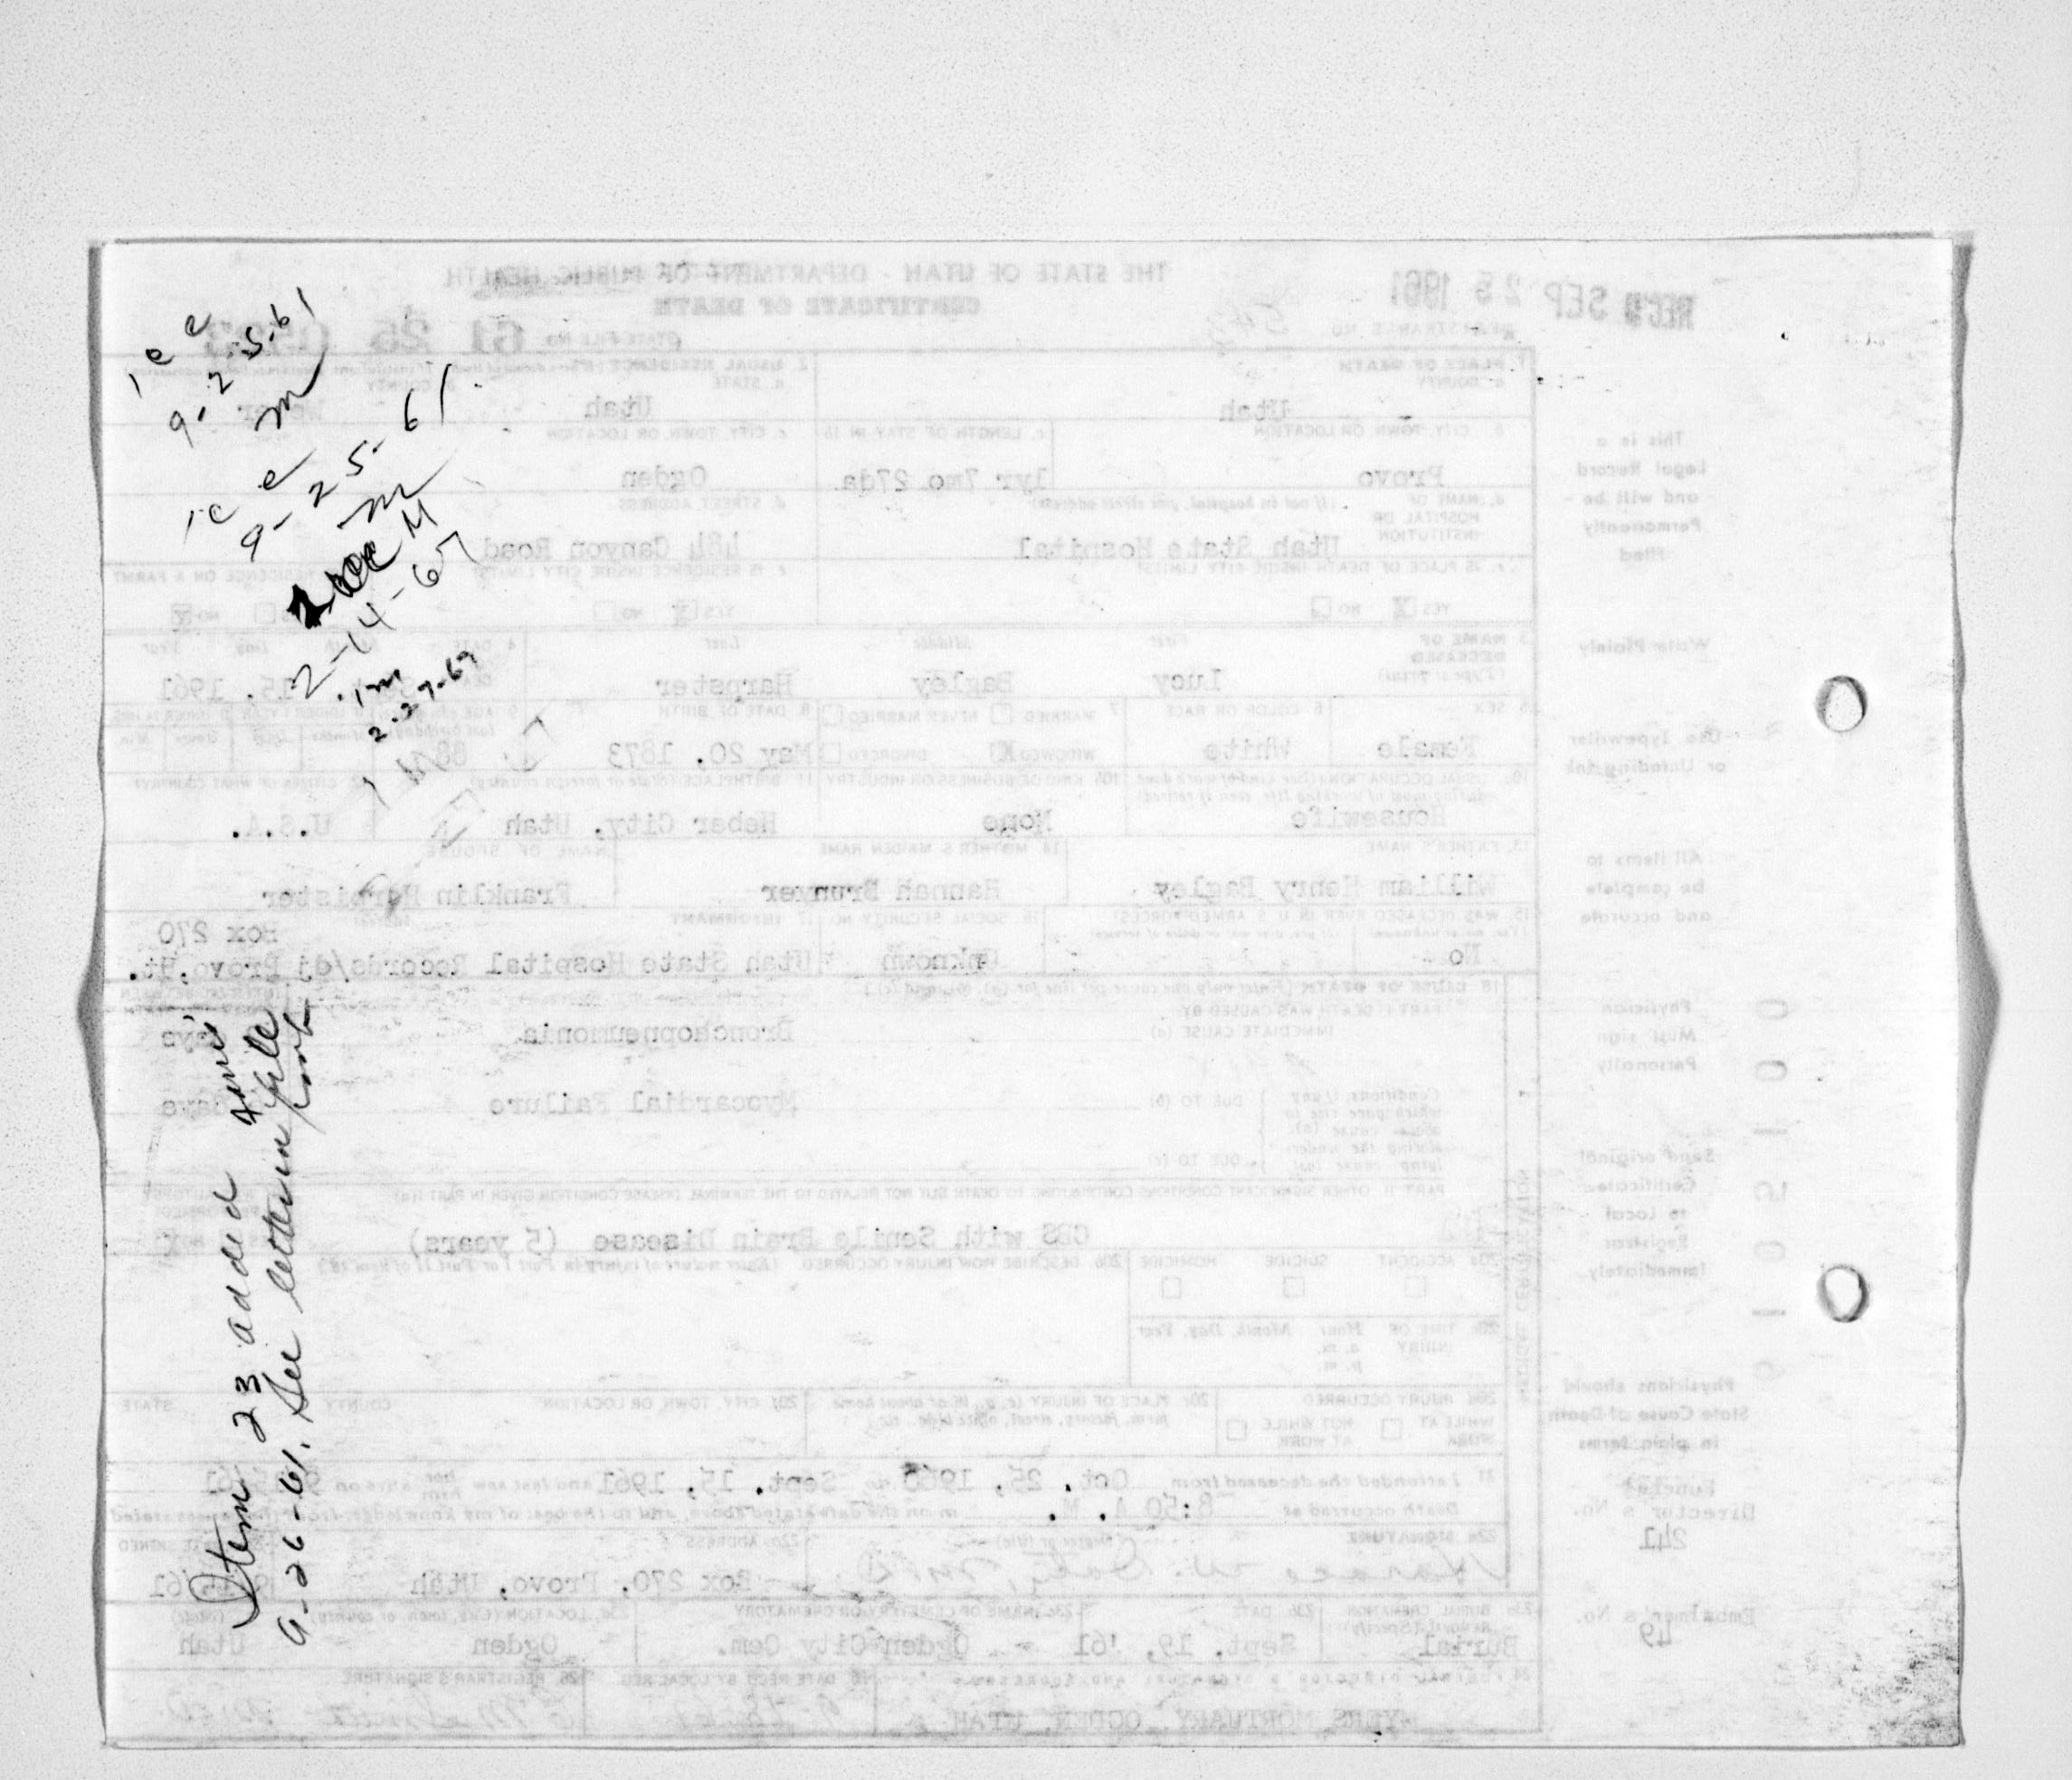 1 c c
9-25-61
m
1 c c
9-25-61
m
1 cc M
2-14-67
1 m
2-27-69
Item 23 added
9-26-61. See letter in file
THE STATE OF UTAH - DEPARTMENT OF PUBLIC HEALTH
CERTIFICATE OF DEATH
REC'D SEP 25 1961
REGISTRAR'S NO. 543
STATE FILE NO. 61 25
1. PLACE OF DEATH
a. COUNTY
Utah
2. USUAL RESIDENCE
a. STATE
Utah
b. COUNTY
Weber
b. CITY, TOWN, OR LOCATION
Provo
c. LENGTH OF STAY IN 1b
1yr 7mo 27da
c. CITY, TOWN, OR LOCATION
Ogden
d. NAME OF HOSPITAL OR INSTITUTION
(If not in hospital, give street address)
Utah State Hospital
d. STREET ADDRESS
Canyon Road
e. IS PLACE OF DEATH INSIDE CITY LIMITS?
YES X NO
e. IS RESIDENCE INSIDE CITY LIMITS?
YES X NO
RESIDENCE ON A FARM?
NO X
3. NAME OF DECEASED
(Type or print)
First Middle Last
Lucy Bagley Harpster
4. DATE
Month Day Year
Sept. 15, 1961
5. SEX
Female
6. COLOR OR RACE
White
7. MARRIED NEVER MARRIED
WIDOWED X DIVORCED
8. DATE OF BIRTH
May 20, 1873
9. AGE
88
10a. USUAL OCCUPATION (Give kind of work done during most of working life, even if retired)
Housewife
10b. KIND OF BUSINESS OR INDUSTRY
None
11. BIRTHPLACE (State or foreign country)
Heber City, Utah
12. CITIZEN OF WHAT COUNTRY?
U.S.A.
13. FATHER'S NAME
William Henry Bagley
14. MOTHER'S MAIDEN NAME
Hannah
NAME OF SPOUSE
Franklin Harpister
15. WAS DECEASED EVER IN U. S. ARMED FORCES?
No
16. SOCIAL SECURITY NO.
Unknown
17. INFORMANT
Address
Box 270
Utah State Hospital Records/dj Provo, Ut.
18. CAUSE OF DEATH (Enter only one cause per line for (a), (b), and (c).)
PART I. DEATH WAS CAUSED BY:
IMMEDIATE CAUSE (a)
Bronchopneumonia
days
Conditions, if any which gave rise to above cause (a), stating the underlying cause last.
DUE TO (b)
Myocardial Failure
days
DUE TO (c)
PART II. OTHER SIGNIFICANT CONDITIONS CONTRIBUTING TO DEATH BUT NOT RELATED TO THE TERMINAL DISEASE CONDITION GIVEN IN PART I (a)
CBS with Senile Brain Disease (5 years)
20a. ACCIDENT SUICIDE HOMICIDE
20b. DESCRIBE HOW INJURY OCCURRED. (Enter nature of injury in Part I or Part II of item 18.)
20c. TIME OF INJURY
Hour Month, Day, Year
a. m.
p. m.
20d. INJURY OCCURRED
WHILE AT WORK NOT WHILE AT WORK
20e. PLACE OF INJURY (e. g., in or about home, farm, factory, street, office bldg., etc.)
20f. CITY, TOWN, OR LOCATION COUNTY STATE
21. I attended the deceased from Oct. 25, 1960 to Sept. 15, 1961 and last saw her him alive on
Death occurred at 8:50 A. M.
22a. SIGNATURE
(Degree or title)
22b. ADDRESS
Box 270, Provo, Utah
23a. BURIAL, CREMATION, REMOVAL (Specify)
Burial
23b. DATE
Sept. 19, '61
23c. NAME OF CEMETERY OR CREMATORY
Ogden City Cem.
23d. LOCATION (City, town, or county) (State)
Ogden Utah
24. FUNERAL DIRECTOR'S SIGNATURE AND ADDRESS
MYERS MORTUARY OGDEN, UTAH
DATE REC'D BY LOCAL REG.
REGISTRAR'S SIGNATURE
This is a
Legal Record
and will be
Permanently
filed
Write Plainly
Use Typewriter
or Unfading Ink
All items to
be complete
and accurate
Physician
Must sign
Personally
Send original
Certificate
to Local
Registrar
Immediately
Physicians should
State Cause of Death
in plain terms
Funeral
Director's No.
241
Embalmer's No.
49